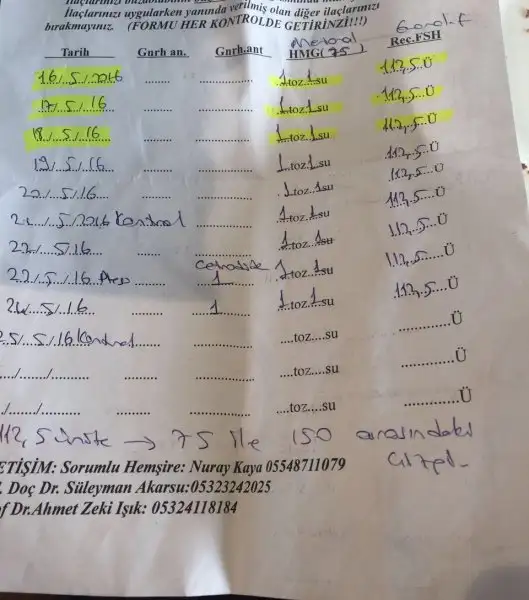 ilaçlarınızı uygularken yanında verilmiş olan diğer ilaçlarınızı
bırakmayınız. (FORMU HER KONTROLDE GETİRİNZİ!!!)
Gonal-f
Tarih Gnrh an. Gnrh.ant HMG(75) Rec.FSH
16/.5./.2016 ....... .............. 1.toz.1.su 112,5.Ü
17/.5./.16. ....... .............. 1.toz.1.su 112,5.Ü
18/.5./.16. ....... .............. 1.toz.1.su 112,5.Ü
19/.5./.16. ....... .............. 1.toz.1.su 112,5.Ü
20/.5/.16. ....... .............. 1.toz.1su 112,5.Ü
21./.5./2016 Kontrol .............. 1.toz.1su 112,5.Ü
22/..5/.16. ....... .............. 1.toz.1su 112,5.Ü
Cetrotide
5./.16. ....... 1 1.toz.1su 112,5.Ü
24./..5/.16. ....... 1 1.toz.1.su 112,5.Ü
25/..5/.16 Kontrol....... .............. ....toz....su .............Ü
.../......./.......... ......... .............. ....toz....su .............Ü
./......./.......... ......... .............. ....toz....su .............Ü
112,5 ünite → 75 ile 150 arasındaki
çizgi
ETİŞİM: Sorumlu Hemşire: Nuray Kaya 05548711079
. Doç Dr. Süleyman Akarsu:05323242025
f Dr.Ahmet Zeki Işık: 05324118184